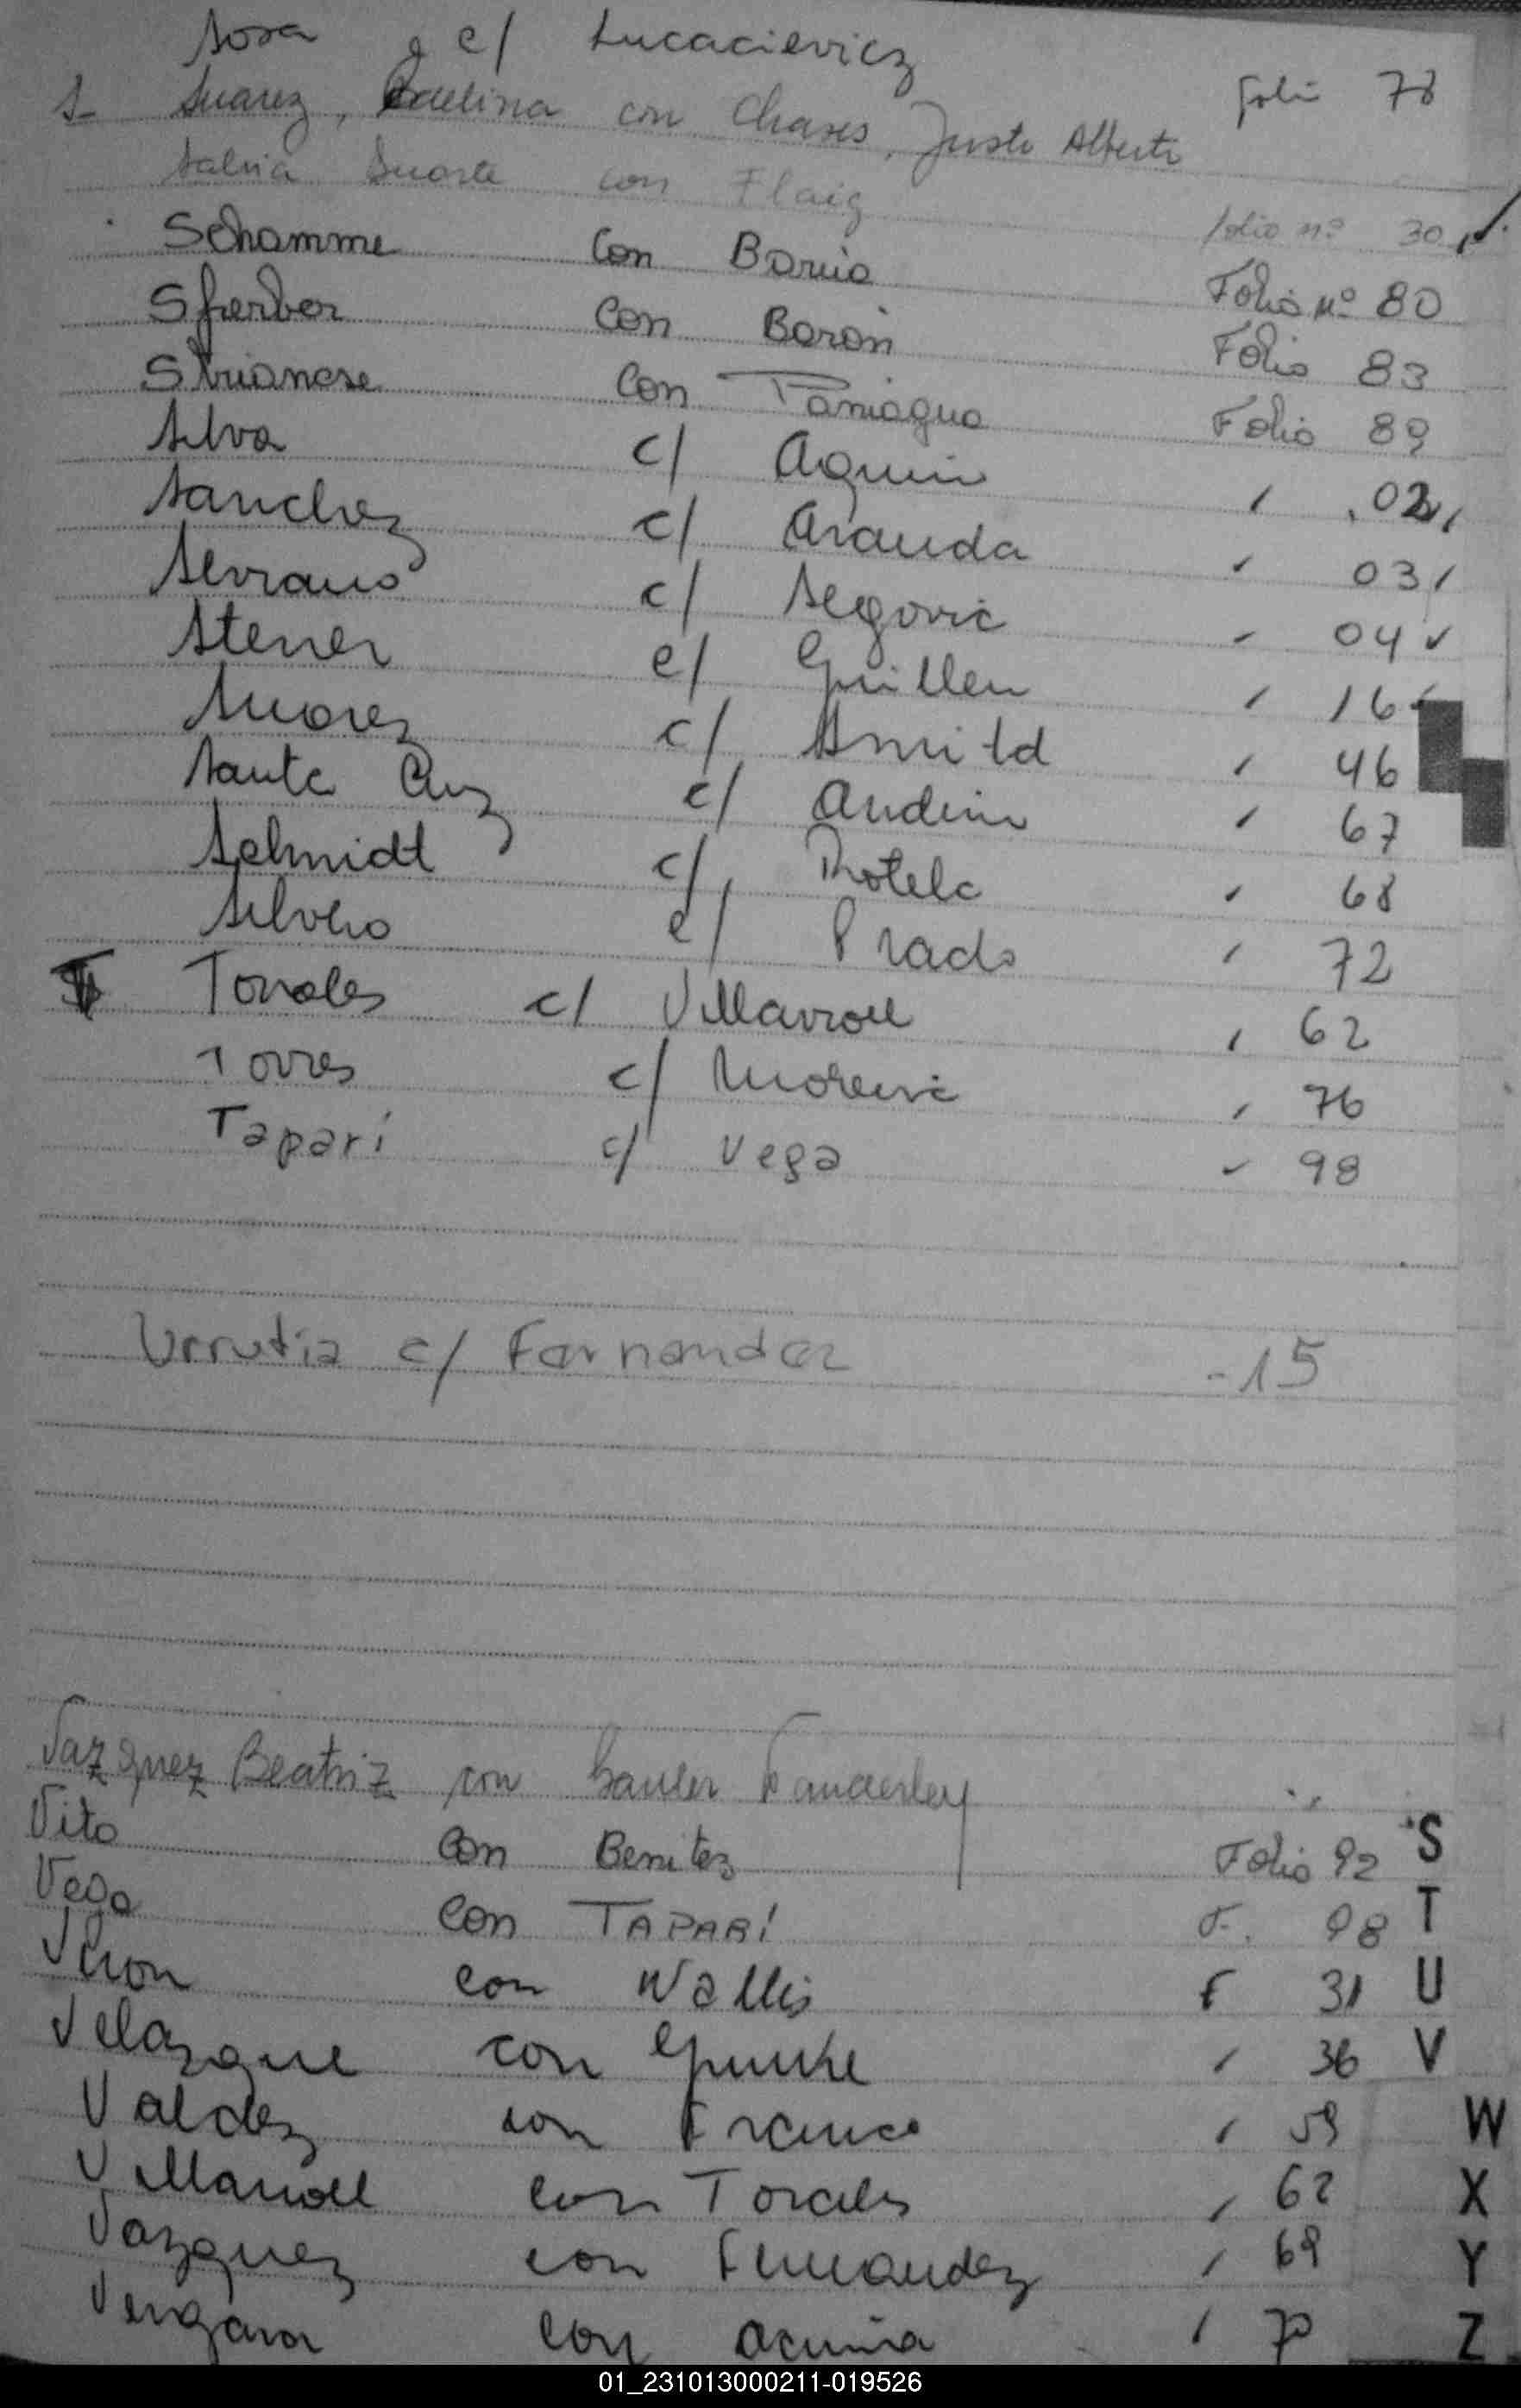 Sosa c/ Lucacievicz folio 78
S- Suarez, Paulina con Chaves, Justo Alberto
Salvia Duarte con Flaig folio nº 30
Schamme Con Barrio Folio Nº 80
Sferber Con Barón Folio 83
Struianese Con Paniagua Folio 89
Silva c/ Aquin " 02
Sanchez c/ Aranda " 03
Serrano c/ Segovia " 04
Stener c/ Guillen " 16
Suarez c/ Smitd " 46
Santa Cruz c/ Andino " 67
Schmidt c/ Rotela " 68
Silverio c/ Prado " 72
T Torrales c/ Villarroel " 62
Torres c/ Moreira " 76
Tapari c/ Vega " 98
Urrutia c/ Fernandez - 15
Vazquez Beatriz con
Vito con Benitez Folio 92 S
Vega con TAPARÍ F. 98 T
Viron con Wallis F 31 U
Velazque con Grunke " 36 V
Valdez con Franco " 59 W
Villarroel con Torales " 62 X
Vazquez con Fernandez " 69 Y
Vergara con Acuña " 70 Z
01_231013000211-019526